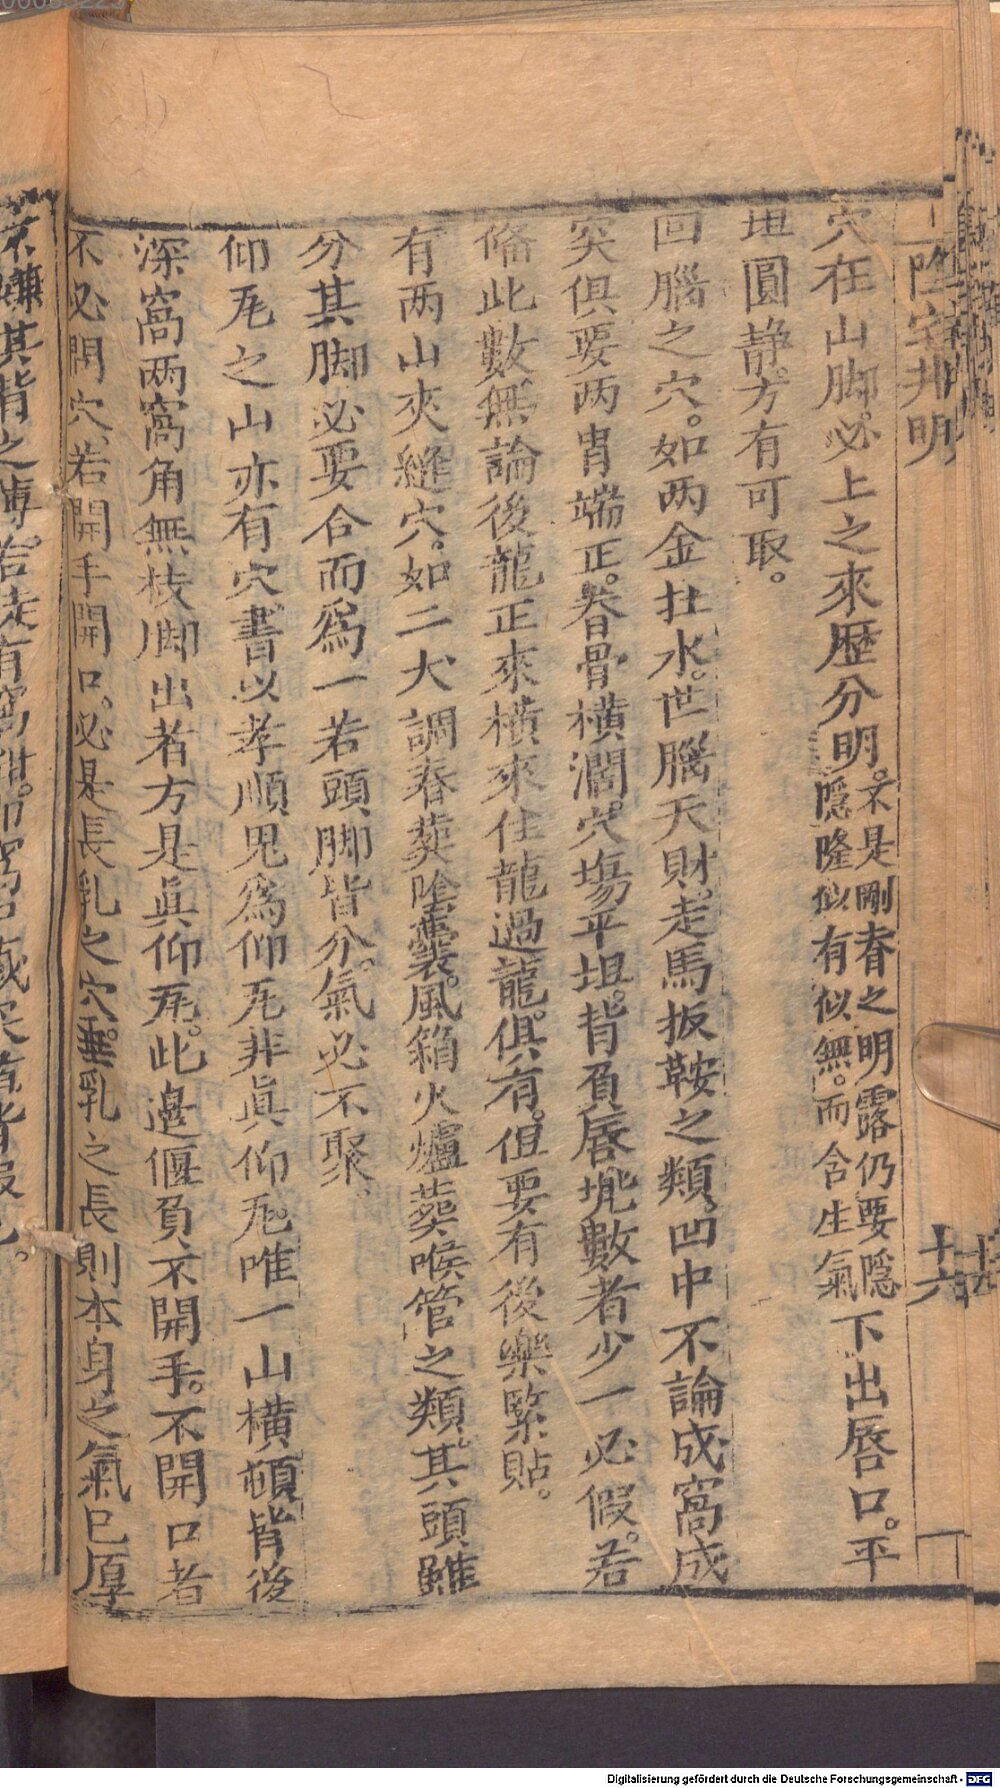 陰宅井明
十六
穴在山脚。必上之來歷分明。不是剛脊之明露仍要隱隱隆似有似無。而含生氣下出唇口。平
坦圓静。方有可取。
回腦之穴。如两金扛水。世腦天財。走馬扳鞍之類。凹中不論成窩成
突俱要两肯端正。脊骨橫濶。穴塲平坦。背負唇毑數者少一必假。若
俻此數無論後龍正來橫來住龍過龍。俱有。但要有後樂緊貼。
有两山夾縫穴。如二犬調春葬陰囊。風箱火爐葬喉管之類。其頭雖
分其脚必要合而爲一若頭脚皆分。氣必不聚。
仰瓦之山亦有穴書以孝順鬼爲仰瓦非眞仰瓦。唯一山橫頓背後
深窩两窩角無枝脚出者方是眞仰瓦。此邉偃負不開手。不開口者
不必問穴。若開手開口。必是長乳之穴。垂乳之長則本身之氣已厚
Digitalisierung gefördert durch die Deutsche Forschungsgemeinschaft - DFG